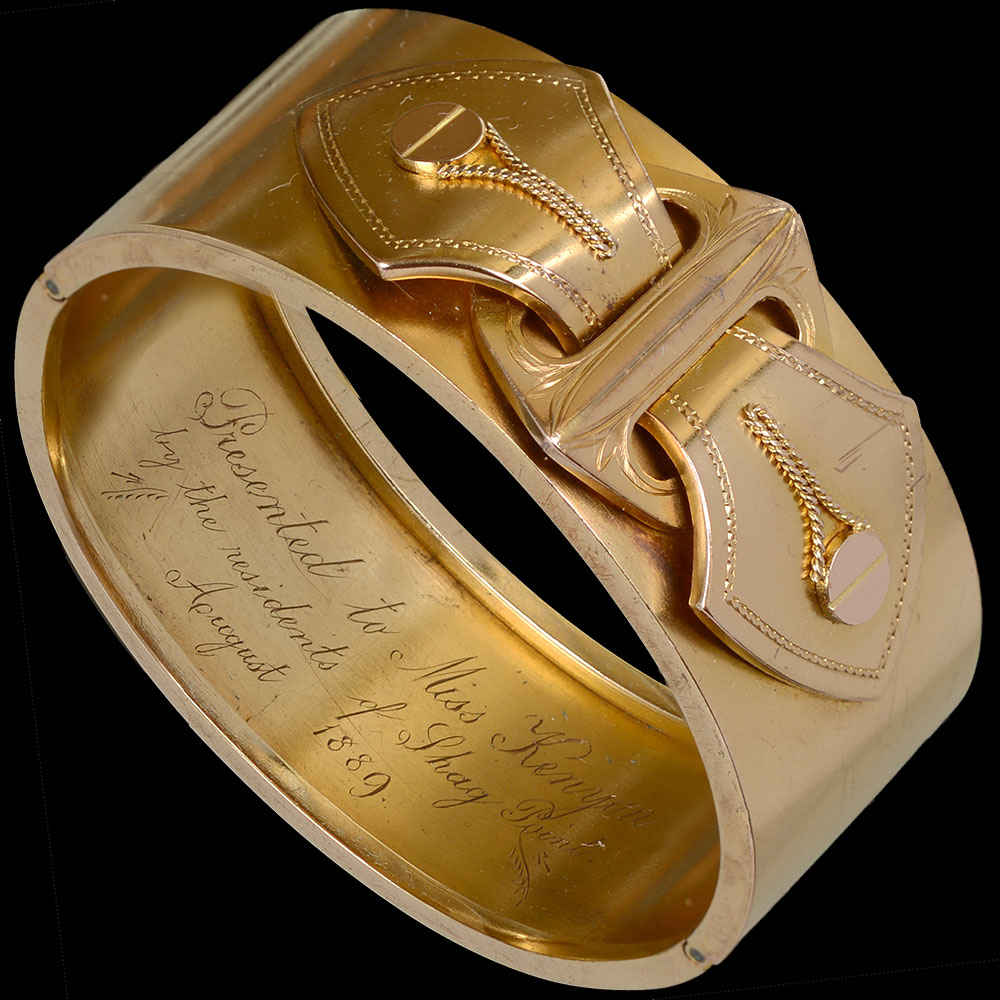 Presented to Miss Kenyon
by the residents of Shag Point.
August 1889.